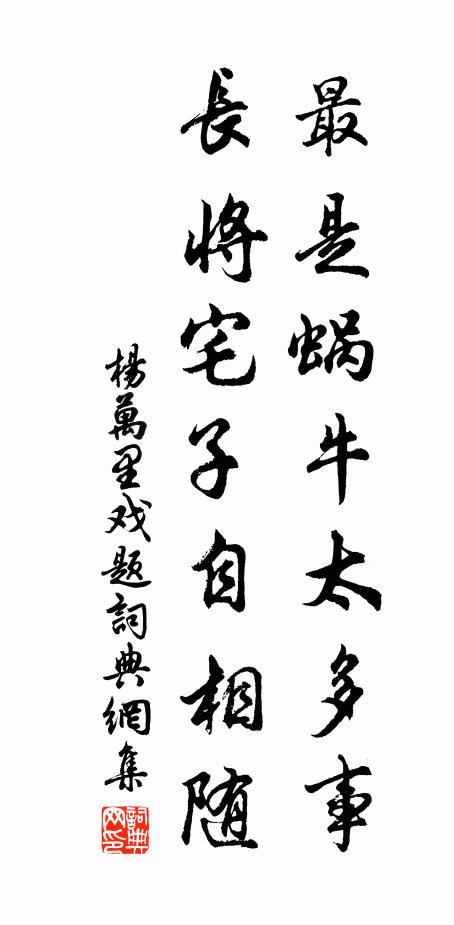 最是蝸牛太多事
長將宅子自相随
楊萬里戏題詞典網集
詞典
网印